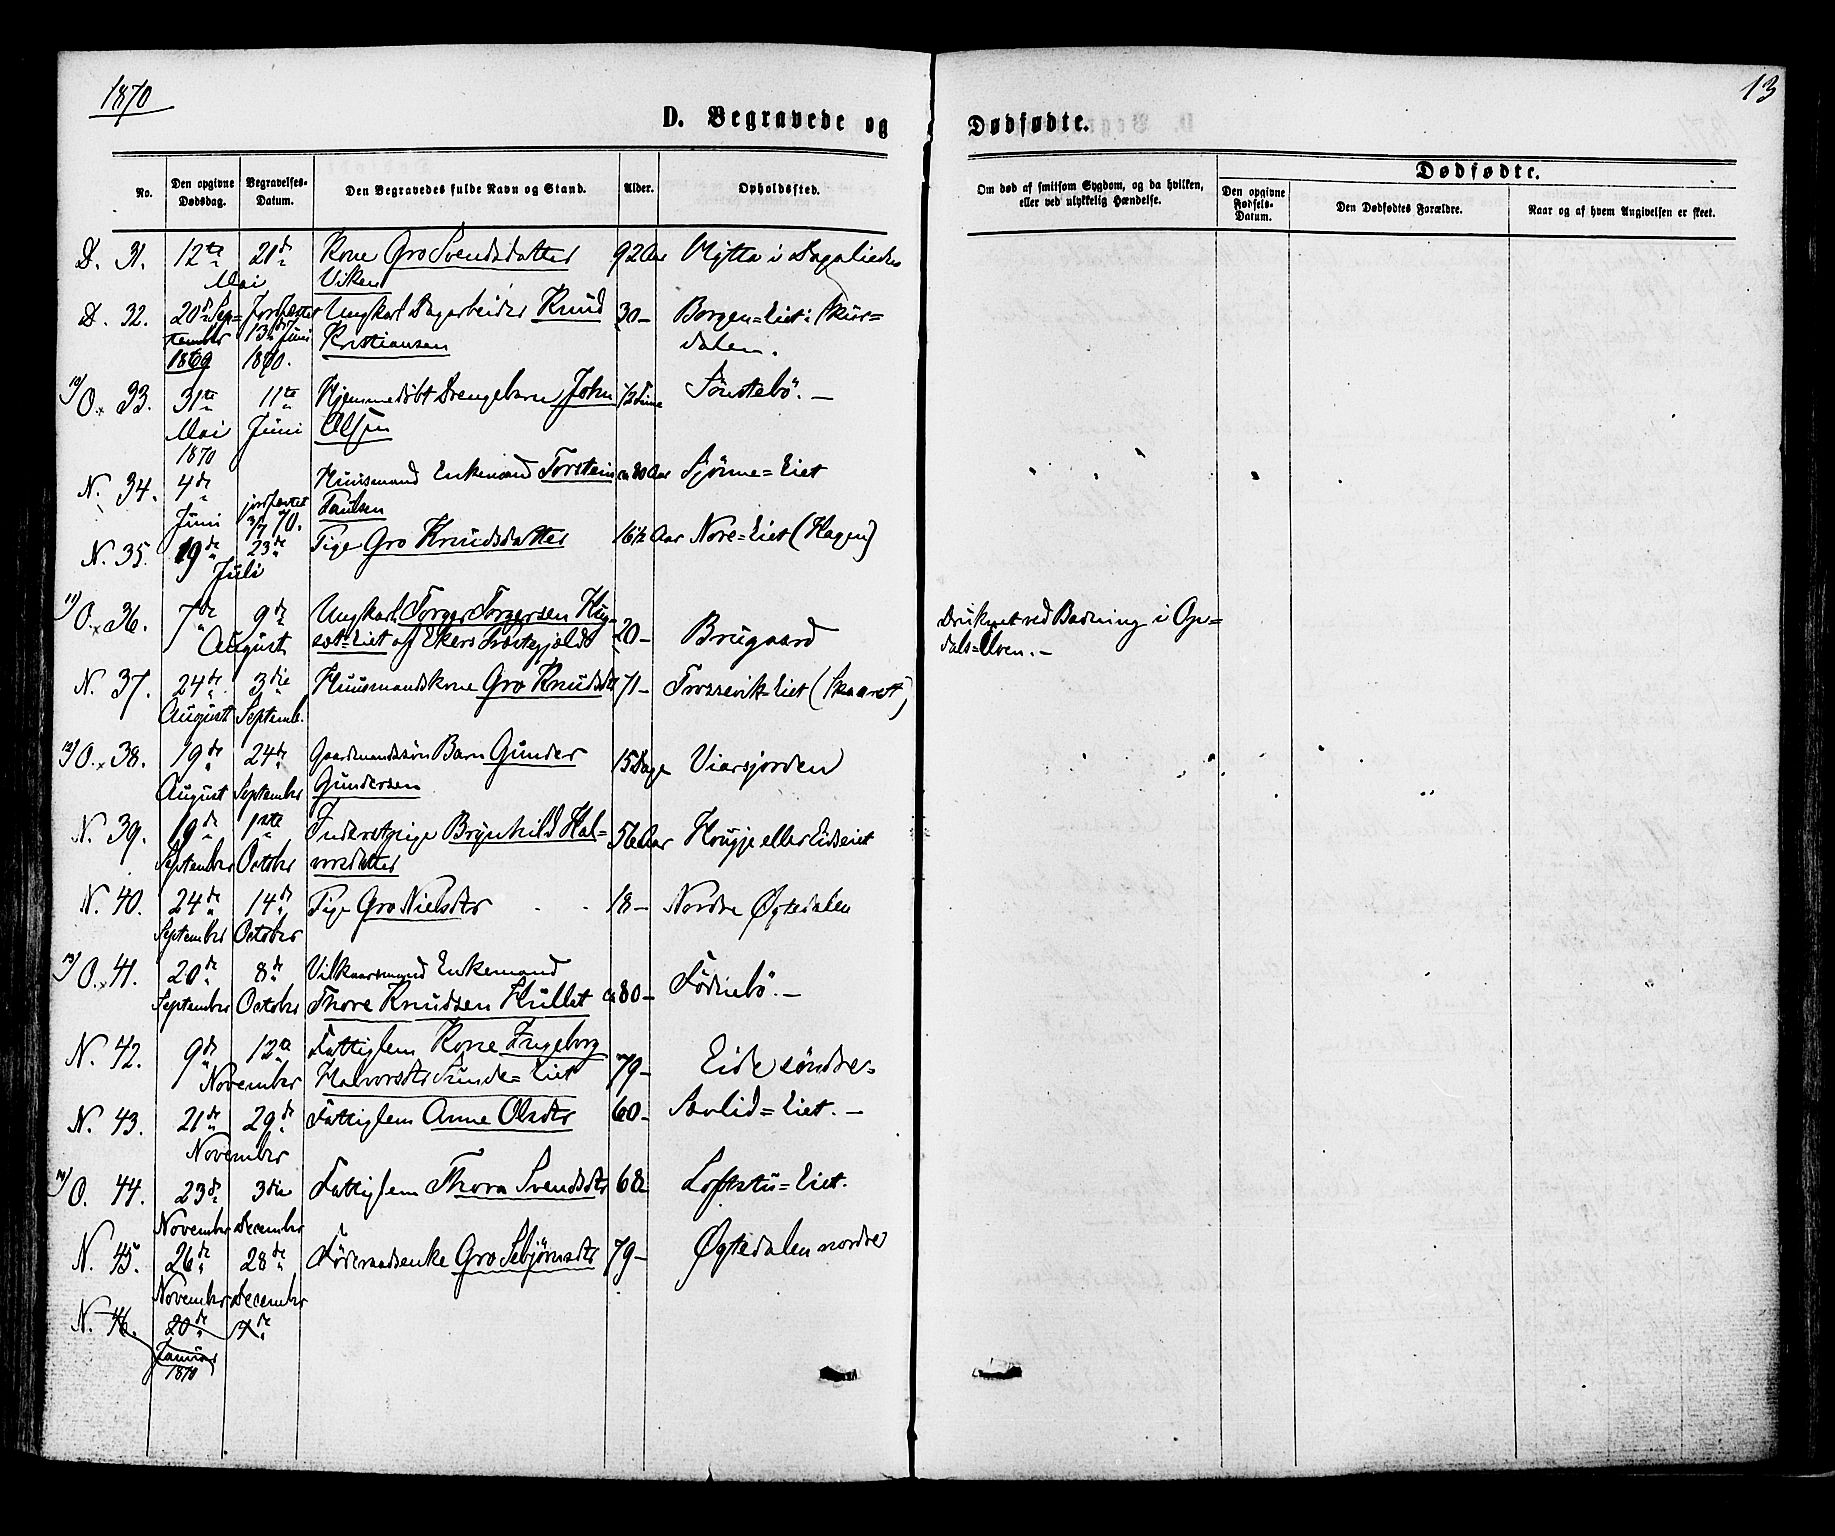 1870
13
D. Begravede og Dødfødte.
No.
Den opgivne Dødsdag.
Begravelses-Datum.
Den Begravedes fulde Navn og Stand.
Alder.
Opholdssted.
Om død af smitsom Sygdom, og da hvilken, eller ved ulykkelig Hændelse.
Dødfødte.
Den opgivne Fødsels-Datum.
Den Dødfødtes Forældre.
Naar og af hvem Angivelsen er skeet.
D. 31. 12te 21de Kone Gro Svendsdatter 92 Aar Mytta i Dagaliedn
Mai Viken
D. 32. 20de Sep- Jordfæstet Ungkarl Dagarbeider Knud 30- Borgen=Eiet i Skur-
tember 13de Juni Kristiansen dalen.
1869 1870.
O. 33. 31te 11te Hjemmedøbt Drengebarn John ½ Time Sønstebö. -
Mai Juni Olsen
1870
N. 34. 4de Huusmand Enkemand Torstein ca 80 Aar Sjønne=Eiet
Juni jordfæstet 3/7 70. Paulsen
N. 35. 19de 23de Pige Gro Knudsdatter 16½ Aar Nore=Eiet (Hagen)
Juli
11/ O. 36. 7de 9de Ungkarl Torger Torgersen
August Eiet af Ekers Præstegjeld 20- Brugaard Druknet ved Badning i Op-
dals=Elven. -
N. 37. 24de 3die Huusmandskone Gro Knudsdtr 71- Frossevik Eiet (Skaaret)
August Septemb.
12/ O. 38. 19de 24de Gaardmandssøn Barn Gunder 15 Dage Viarsjorden
August September Gundersen
N. 39. 19de 1ste Inderstpige Brynhild Hal- 56 Aar Hougje eller Eidseiet
September October vorsdatter
N. 40. 24de 14de Pige Gro Nielsdtr 18- Nordre Øgtedalen
September October
13/ O. 41. 20de 8de Vilkaarsmand Enkemand
September October Thore Knudsen Hullet ca 80- Födnebö. -
N. 42. 9de 12te Fattiglem Kone Ingeborg
November Halvorsdtr Sunde=Eiet 79- Eide søndre-
N. 43. 21de 29de Fattiglem Anne Olsdtr 60- Sevlid=Eiet. -
November
14/ O. 44. 23de 3die Fattiglem Thora Svendsdtr 68 Loftstu=Eiet.
November December
N. 45. 26de 28de Föderaadsenke Gro Sebjørnsdtr 79- Øgtedalen nordre
November December
N. 46. 20de 7de
Januar
1870